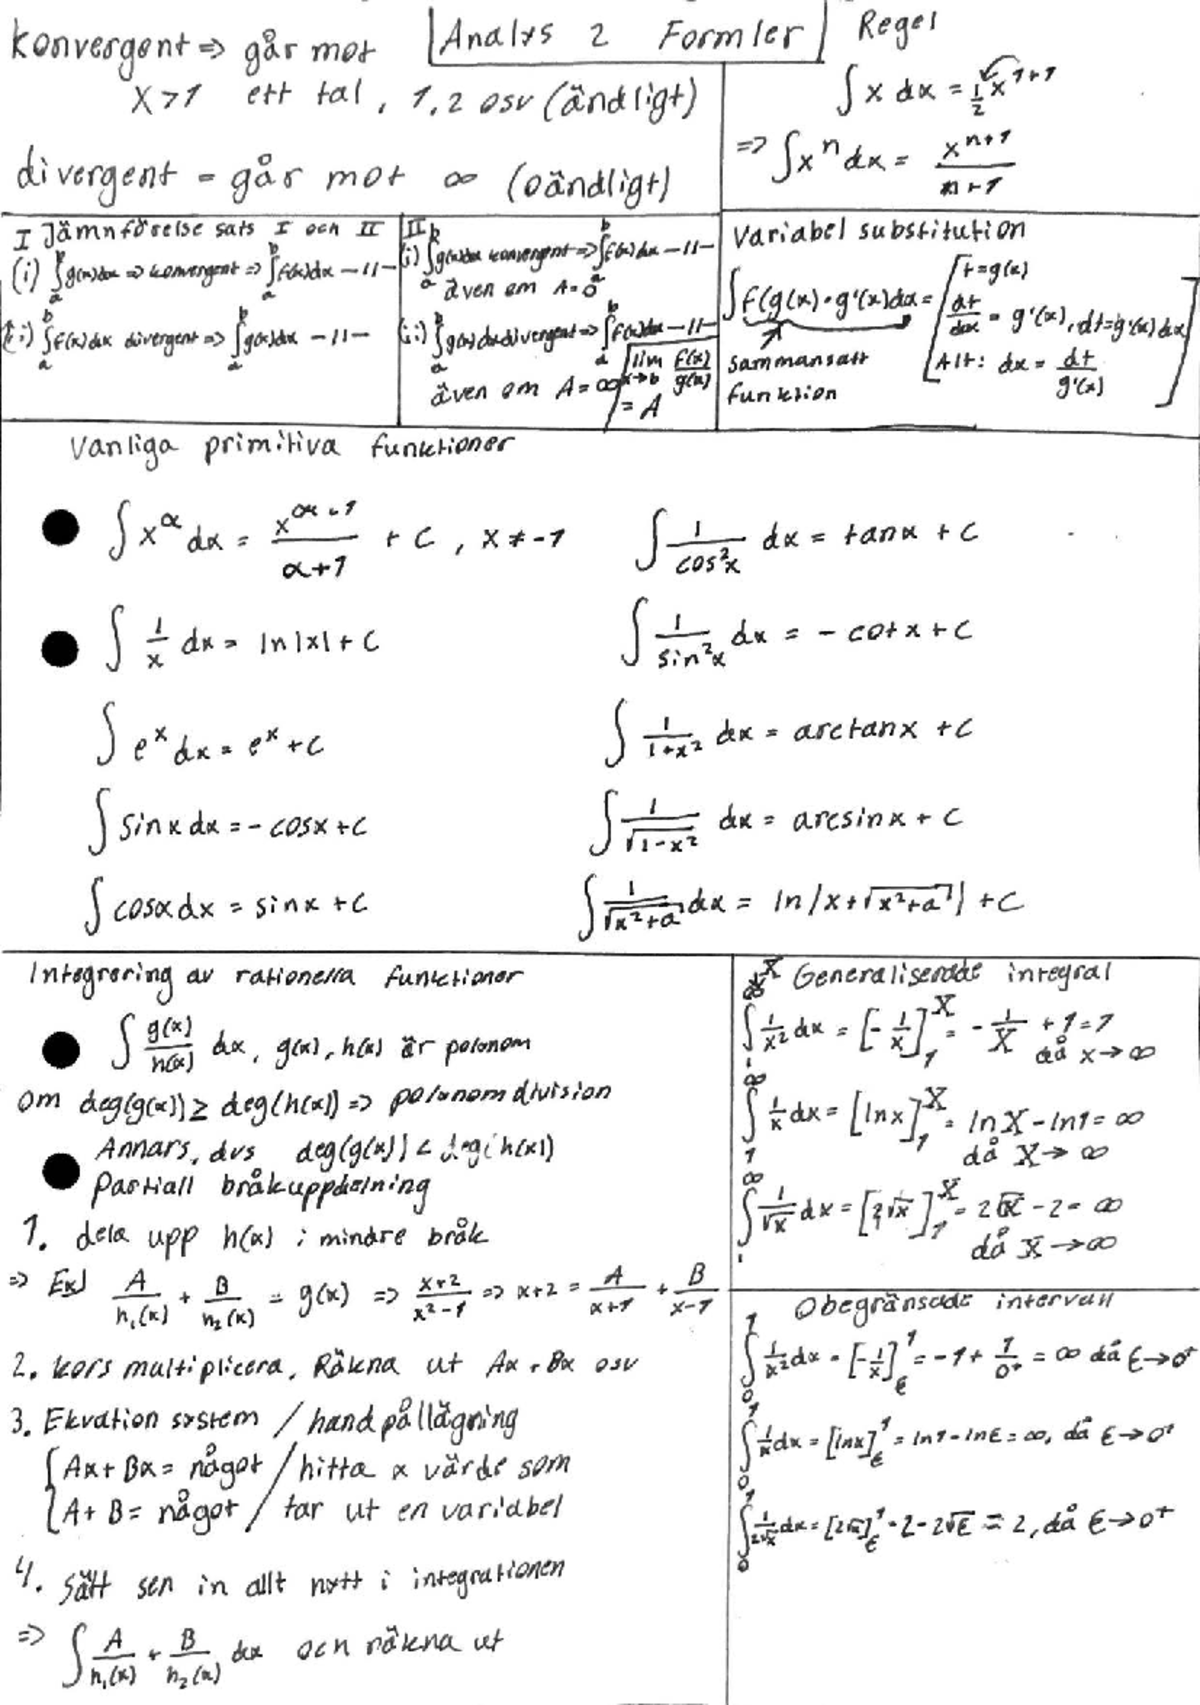 Analys 2 Formler
konvergent => går mot
x>1 ett tal, 1,2 osv (ändligt)
divergent = går mot ∞ (oändligt)
Regel
∫ x dx = 1/2 x^(1+1)
=> ∫x^n dx = x^(n+1)/(n+1)
I Jämnförelse sats I och II
(i) ∫_a^b g(x)dx => konvergent => ∫_a^b f(x)dx -11-
(ii) ∫_a^b f(x)dx divergent => ∫_a^b g(x)dx -11-
II
(i) ∫_a^b g(x)dx konvergent => ∫_a^b f(x)dx -11-
även om A=0
(ii) ∫_a^b g(x)dx divergent => ∫_a^b f(x)dx -11-
även om A=∞
lim x→b f(x)/g(x) = A
Variabel substitution
∫f(g(x)·g'(x)dx = [t=g(x)
dt/dx = g'(x), dt=g'(x)dx
Alt: dx = dt/g'(x)]
sammansatt
funktion
Vanliga primitiva funktioner
∫ x^α dx = x^(α+1)/(α+1) + C, x≠-1
∫ 1/cos²x dx = tanx + C
∫ 1/x dx = ln|x| + C
∫ 1/sin²x dx = -cotx + C
∫ e^x dx = e^x + C
∫ 1/(1+x²) dx = arctanx + C
∫ sinx dx = -cosx + C
∫ 1/√(1-x²) dx = arcsinx + C
∫ cosx dx = sinx + C
∫ 1/√(x²+a) dx = ln|x+√(x²+a)| + C
Integrering av rationella funktioner
∫ g(x)/h(x) dx, g(x), h(x) är polonom
om deg(g(x)) ≥ deg(h(x)) => polynomdivision
Annars, dvs deg(g(x)) < deg(h(x))
Partiall bråkuppdelning
1. dela upp h(x) i mindre bråk
=> Ex) A/h₁(x) + B/h₂(x) = g(x) => (x+2)/(x²-1) => x+2 = A/(x+1) + B/(x-1)
2. kors multiplicera. Räkna ut Ax+Bx osv
3. Ekvation system / handpålläggning
{Ax+Bx = något / hitta x värde som
{A+B = något / tar ut en variabel
4. Sätt sen in allt nytt i integrationen
=> ∫ A/h₁(x) + B/h₂(x) dx och räkna ut
Generaliserade integral
∫_1^∞ 1/x² dx = [-1/x]_1^X = -1/X + 1 = 1
då x→∞
∫_1^∞ 1/x dx = [lnx]_1^X = lnX - ln1 = ∞
då X→∞
∫_1^∞ 1/√x dx = [2√x]_1^X = 2√X - 2 = ∞
då X→∞
Obegränsade intervall
∫_0^1 1/x² dx = [-1/x]_ε^1 = -1 + 1/0⁺ = ∞ då ε→0⁺
∫_0^1 1/x dx = [lnx]_ε^1 = ln1 - lnε = ∞, då ε→0⁺
∫_0^1 1/2√x dx = [2√x]_ε^1 = 2-2√ε = 2, då ε→0⁺